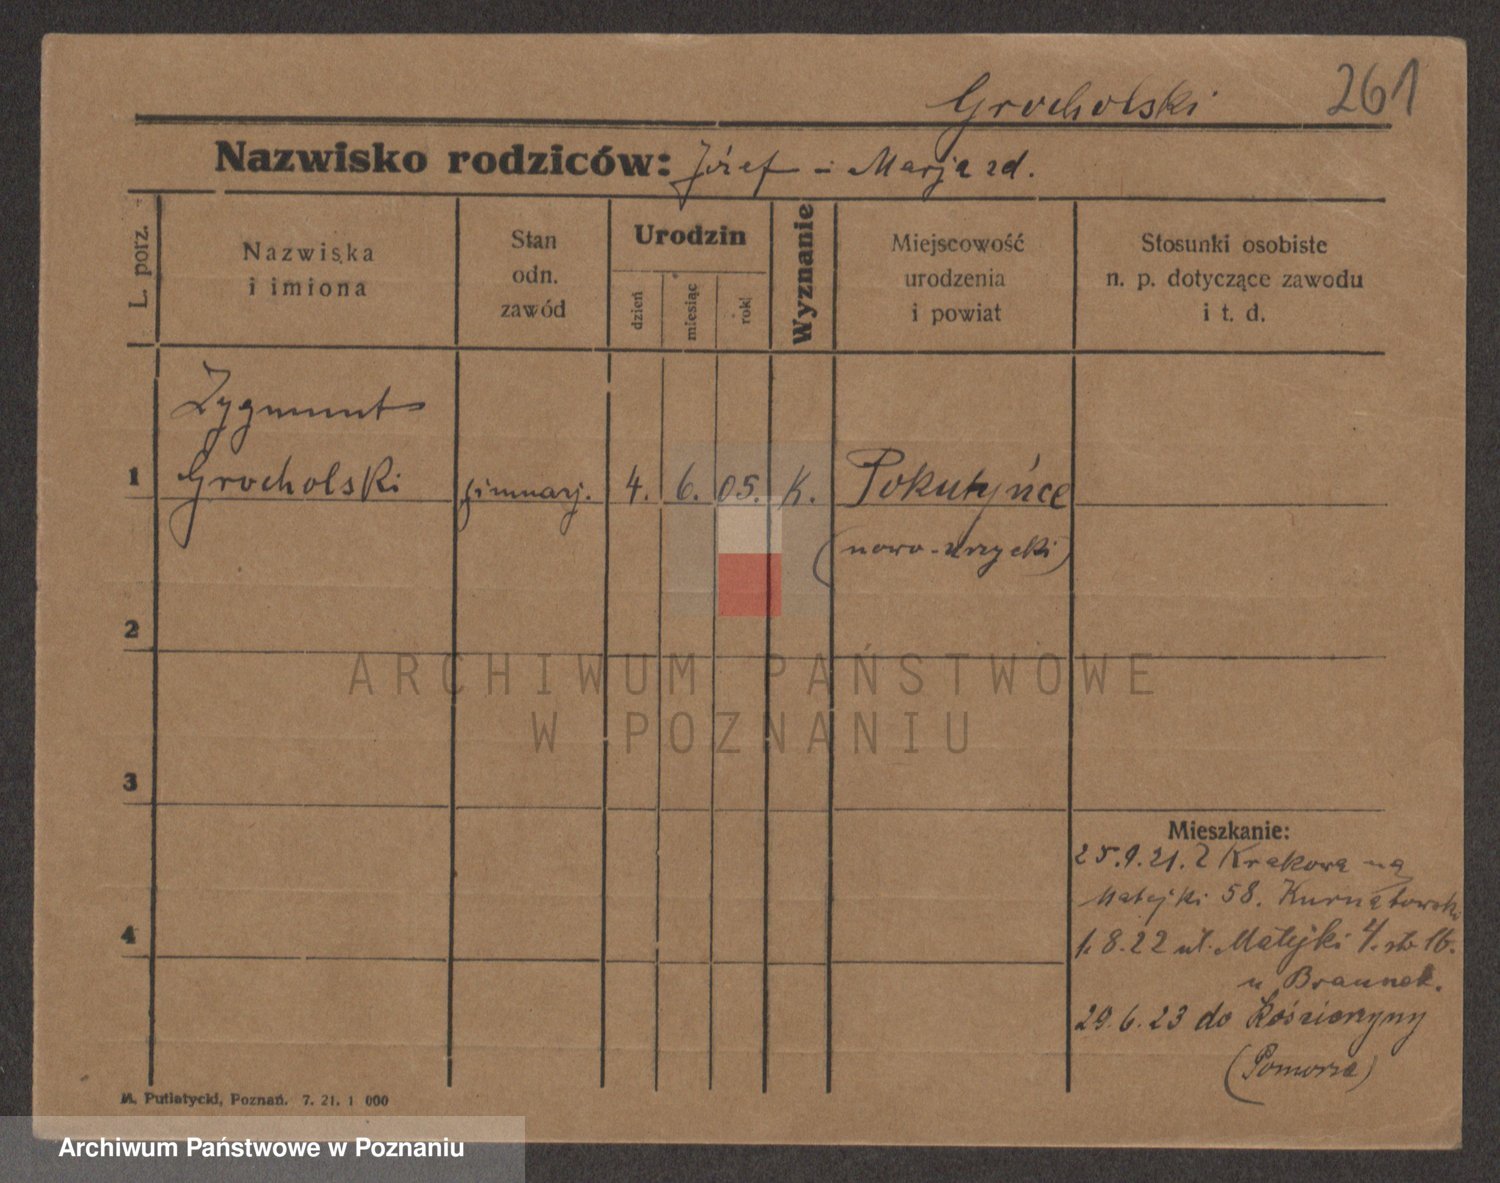 Grocholski 261
Nazwisko rodziców: Józef i Marja zd.
L. porz.
Nazwiska
i imiona
Stan
odn.
zawód
Urodzin
dzień
miesiąc
rok
Wyznanie
Miejscowość
urodzenia
i powiat
Stosunki osobiste
n. p. dotyczące zawodu
i t. d.
Zygmunt
1 Grocholski gimnazj. 4. 6. 05. K. Pokutyńce
(nowo-uszycki)
2
3
4
Mieszkanie:
25.9.21. Z Krakowa na
Matejki 58. Kurnatowski
1.8.22 ul. Matejki 4. st. 16.
u Braunek.
29.6.23 do Kościerzyny
(Pomorze)
M. Putiatycki, Poznań. 7. 21. 1 000
ARCHIWUM PAŃSTWOWE
W POZNANIU
Archiwum Państwowe w Poznaniu